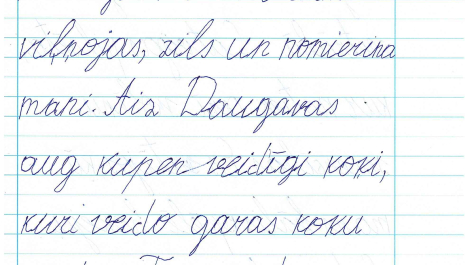 viļņojas, zils un nomierina
mani. Aiz Daugavas
aug kupen veidīgi koki,
kuri veido garas koku